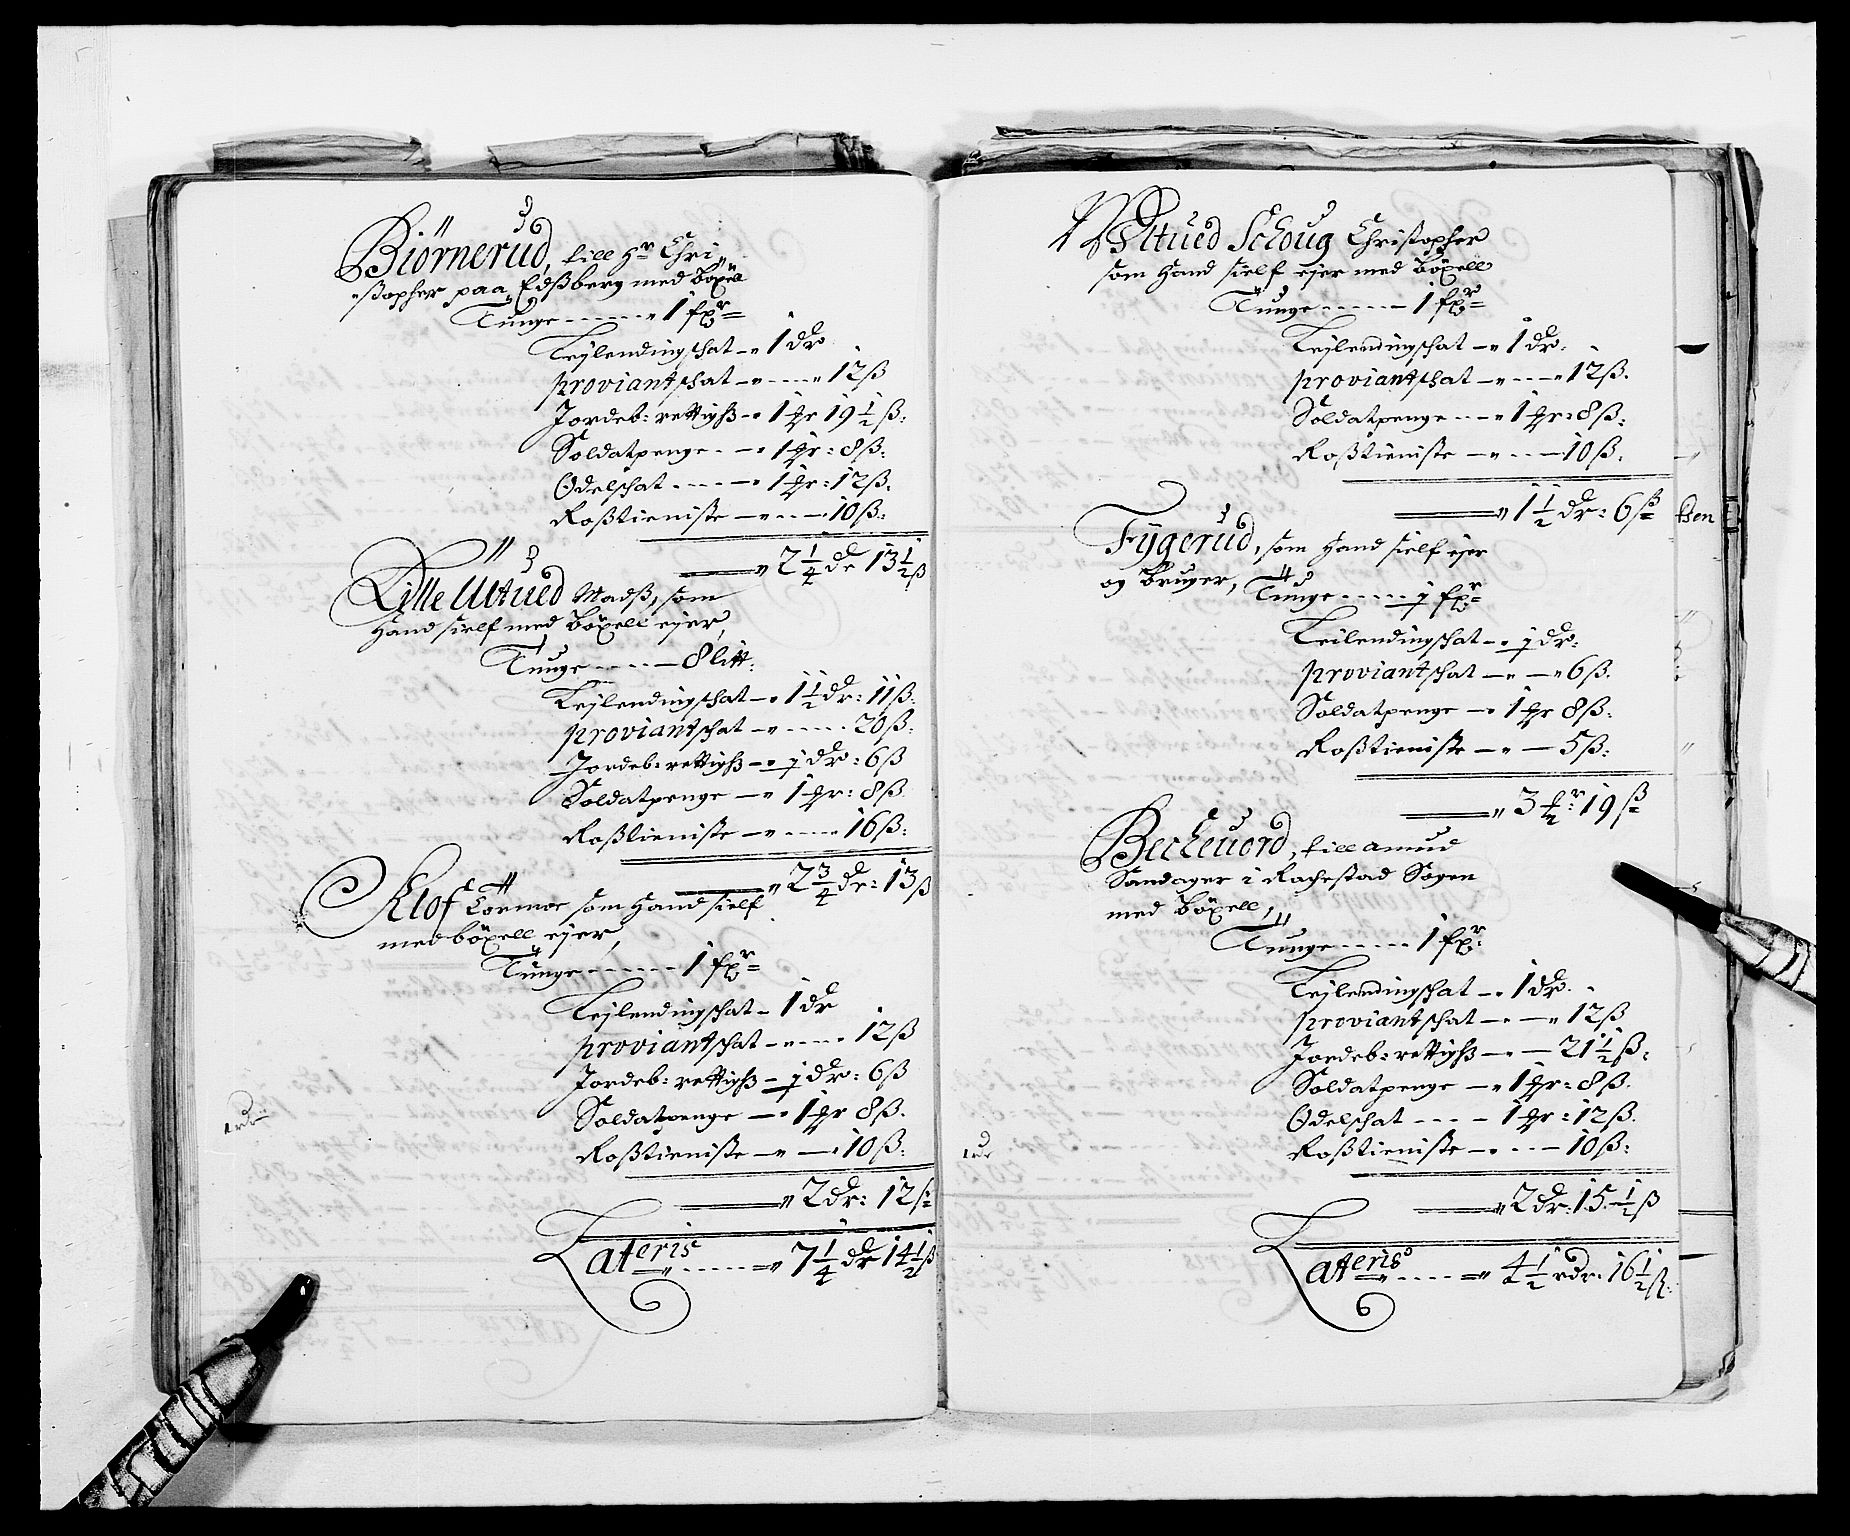 Biørnerud, till Hr Chri-
stopher paa Edsberg med böxell
Tunge - - - - - 1 fxr
Leylendingschat - 1 dr
proviantschat - - - 12 ß
Jordeb: rettigh - 1 qr 19 1/2 ß:
Soldatpenge - - 1 qr: 8 ß:
Odelschat - - - - 1 qr: 12 ß:
Roßtieniste - - - 10 ß:
2 1/4 dr 13 1/2 ß
Lille Ultued Madß, som
Hand sielf med böxell ejer,
Tunge - - - - 8 litt:
Leylendingschat - 1 1/2 dr: 11 ß:
proviantschat - - - - 20 ß:
Jordeb: rettigh - j dr: 6 ß
Soldatpenge - 1 qr: 8 ß
Roßtieniste - - - - 16 ß:
2 3/4 dr: 13 ß
Klof Tormoe som Hand sielf
med böxell ejer,
Tunge - - - - - 1 fxr
Leylendingschat - 1 dr
proviantschat - - - - 12 ß
Jordeb: rettigh - j dr: 6 ß
Soldatpenge - 1 qr 8 ß:
Roßtieniste - - - 10 ß:
2 dr: 12 ß
Lateris - - - - 7 1/4 dr 14 1/2 ß
Ultued Schoug Christopher
som Hand sielf ejer med böxell
Tunge - - - - - 1 fxr
Leylendingschat - 1 dr:
proviantschat - - - - 12 ß:
Soldatpenge - - - 1 qr: 8 ß:
Roßtieniste - - - - 10 ß:
1 1/2 dr: 6 ß
Fygerud, som Hand sielf ejer
og bruger, Tunge - - - - - j fxr
Leilendingschat - j dr:
proviantschat - - - 6 ß:
Soldatpenge - 1 qr 8 ß:
Roßtieniste - - - 5 ß:
3 qr: 19 ß
Becheuord, till Amud
Sandager i Rachestad Sogen
med böxell,
Tunge - - - - - 1 fxr:
Leylendingschat - 1 dr:
proviantschat - - - 12 ß
Jordeb: rettigh - - 21 1/2 ß:
Soldatpenge - 1 qr: 8 ß:
Odelschat - - - - 1 qr: 12 ß:
Roßtieniste - - - - 10 ß:
2 dr: 15 1/2 ß
Lateris - - - - 4 1/2 rdr: 16 1/2 ß: